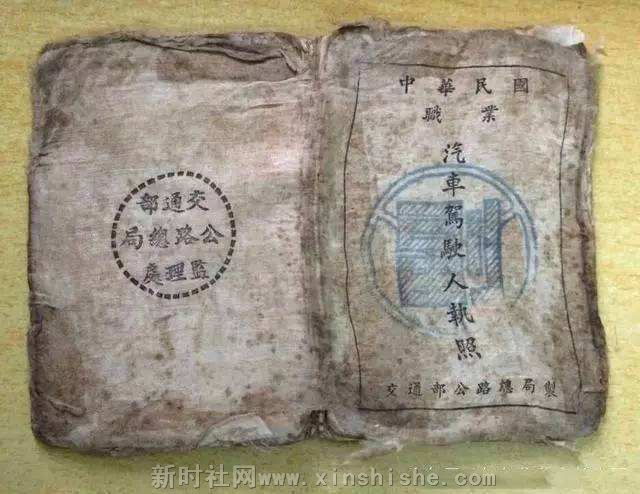 交通部
公路總局
監理處
中華民國
職業
汽車駕駛人執照
交通部公路總局製
新时社网www.xinshishe.com